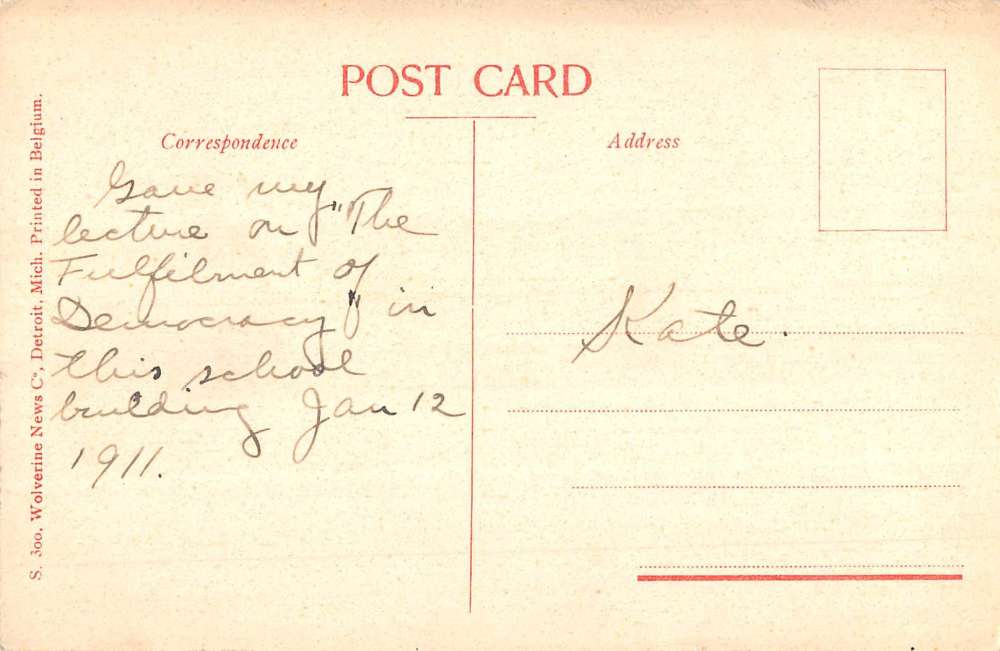 POST CARD
Correspondence
Address
Gave my
lecture on "The
Fulfilment of
Democracy" in
this school
building Jan 12
1911.
Kate.
S. 300, Wolverine News Co, Detroit, Mich. Printed in Belgium.